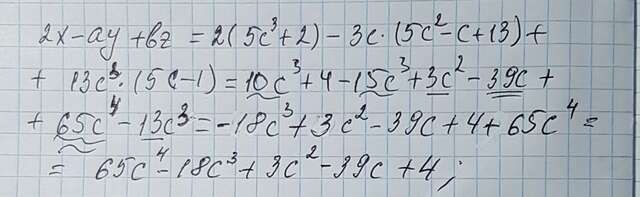 2x-ay+bz = 2(5c³+2) - 3c·(5c²-c+13)+
+ 13c³·(5c-1) = 10c³+4-15c³+3c²-39c+
+ 65c⁴-13c³ = -18c³+3c²-39c+4+65c⁴ =
= 65c⁴-18c³+3c²-39c+4;